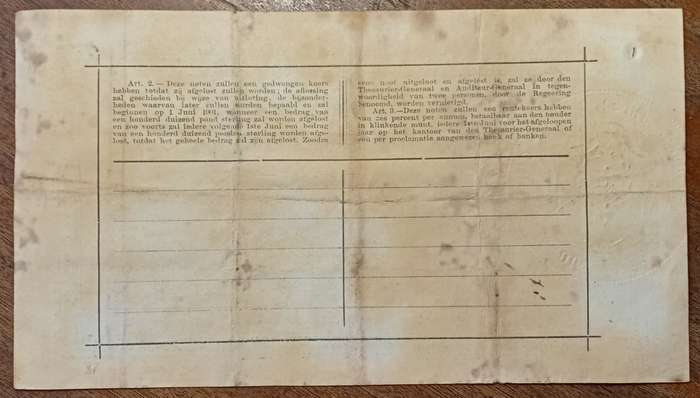 Art. 2.—Deze noten zullen een gedwongen koers
hebben totdat zij afgelost zullen worden; de aflossing
zal geschieden bij wijze van uitloting, de bijzonder-
heden waarvan later zullen worden bepaald en zal
beginnen op 1 Juni 1901, wanneer een bedrag van
een honderd duizend pond sterling zal worden afgelost
en zoo voorts zal iedere volgende 1ste Juni een bedrag
van een honderd duizend ponden sterling worden afge-
lost, totdat het geheele bedrag zal zijn afgelost. Zoodra
eene noot uitgeloot en afgelost is, zal ze door den
Thesaurier-Generaal en Auditeur-Generaal in tegen-
woordigheid van twee personen, door de Regeering
benoemd, worden vernietigd.
Art. 3.—Deze noten zullen een rentekoers hebben
van zes percent per annum, betaalbaar aan den houder
in klinkende munt, iedere 1ste Juni voor het afgeloopen
jaar op het kantoor van den Thesaurier-Generaal of
een per proclamatie aangewezen bank of banken.